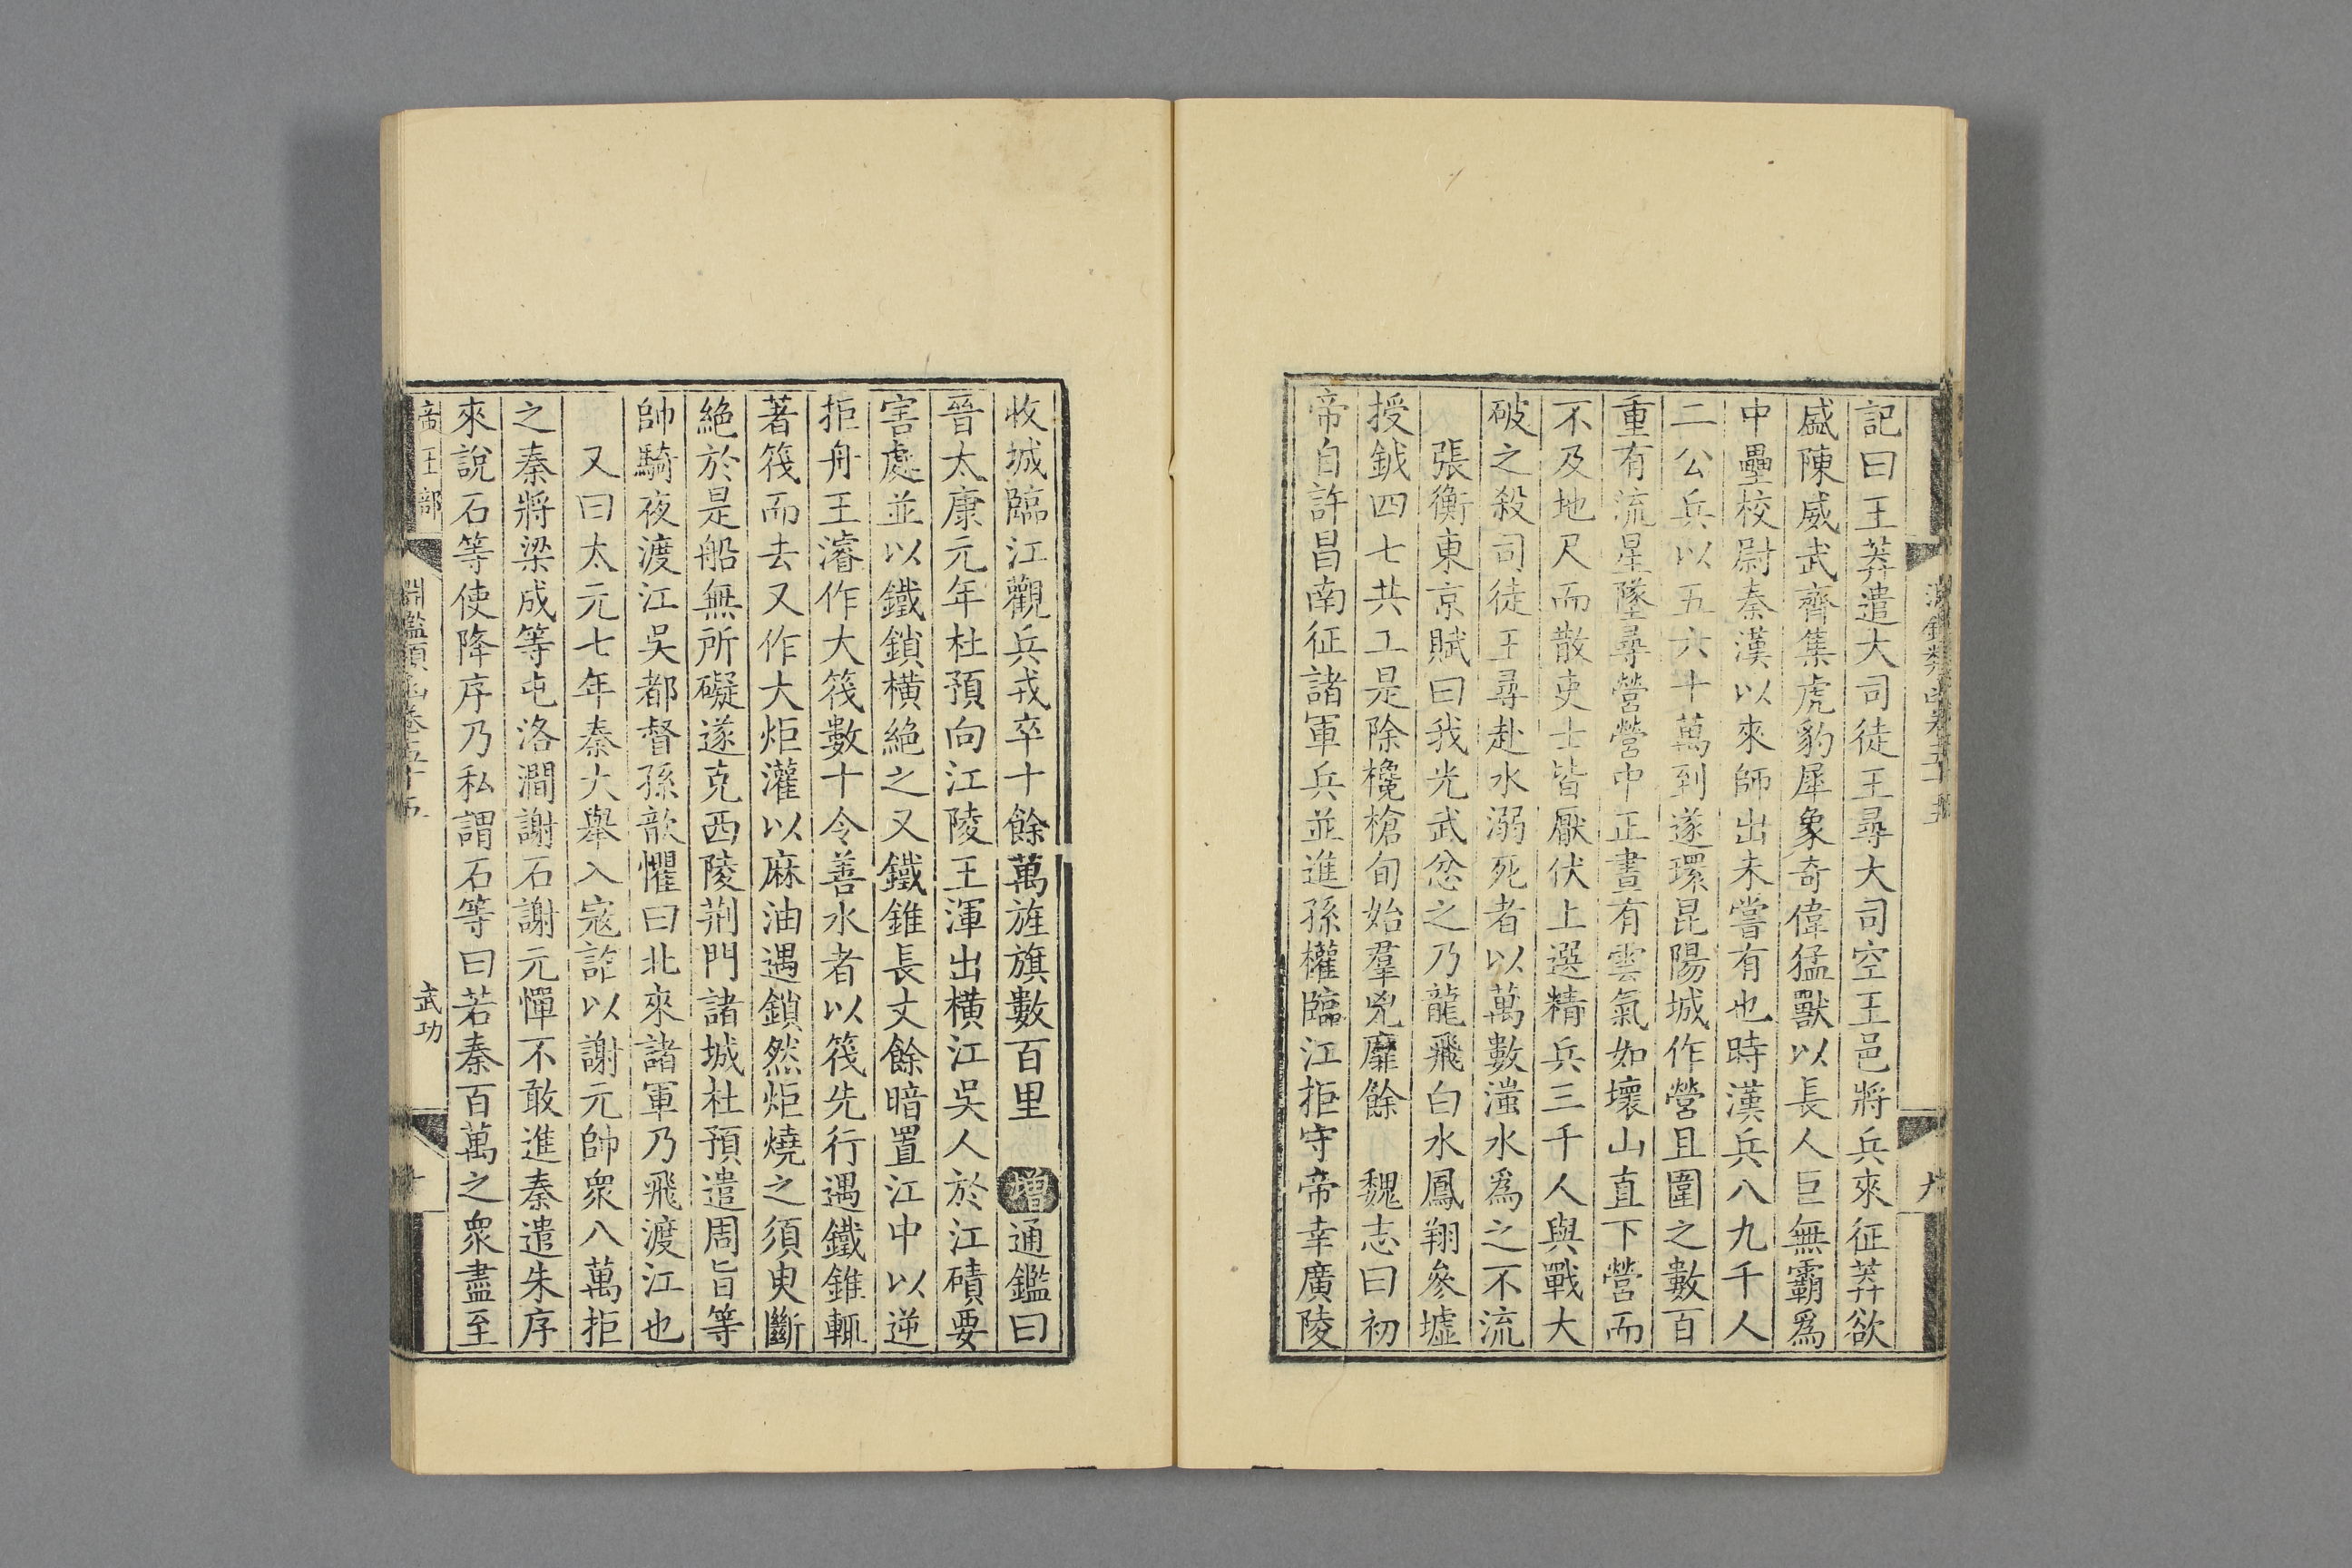 記曰王莽遣大司徒王尋大司空王邑將兵來征莽欲
盛陳威武齊集虎豹犀象奇偉猛獸以長人巨無霸爲
中壘校尉秦漢以來師出未嘗有也時漢兵八九千人
二公兵以五六十萬到遂環昆陽城作營且圍之數百
重有流星墜尋營營中正晝有雲氣如壞山直下營而
不及地尺而散吏士皆厭伏上選精兵三千人與戰大
破之殺司徒王尋赴水溺死者以萬數滍水爲之不流
張衡東京賦曰我光武忿之乃龍飛白水鳳翔參墟
授鉞四七共工是除欃槍旬始羣兇靡餘 魏志曰初
帝自許昌南征諸軍兵並進孫權臨江拒守帝幸廣陵
收城臨江觀兵戎卒十餘萬旌旗數百里 增通鑑曰
晉太康元年杜預向江陵王渾出橫江吳人於江磧要
害處並以鐵鎖橫絕之又鐵錐長丈餘暗置江中以逆
拒舟王濬作大筏數十令善水者以筏先行遇鐵錐輒
著筏而去又作大炬灌以麻油遇鎖然炬燒之須臾斷
絕於是船無所礙遂克西陵荆門諸城杜預遣周旨等
帥騎夜渡江吳都督孫歆懼曰北來諸軍乃飛渡江也
又曰太元七年秦大舉入寇詔以謝元帥衆八萬拒
之秦將梁成等屯洛澗謝石謝元憚不敢進秦遣朱序
來說石等使降序乃私謂石等曰若秦百萬之衆盡至
帝王部 淵鑑類函卷五十五 武功